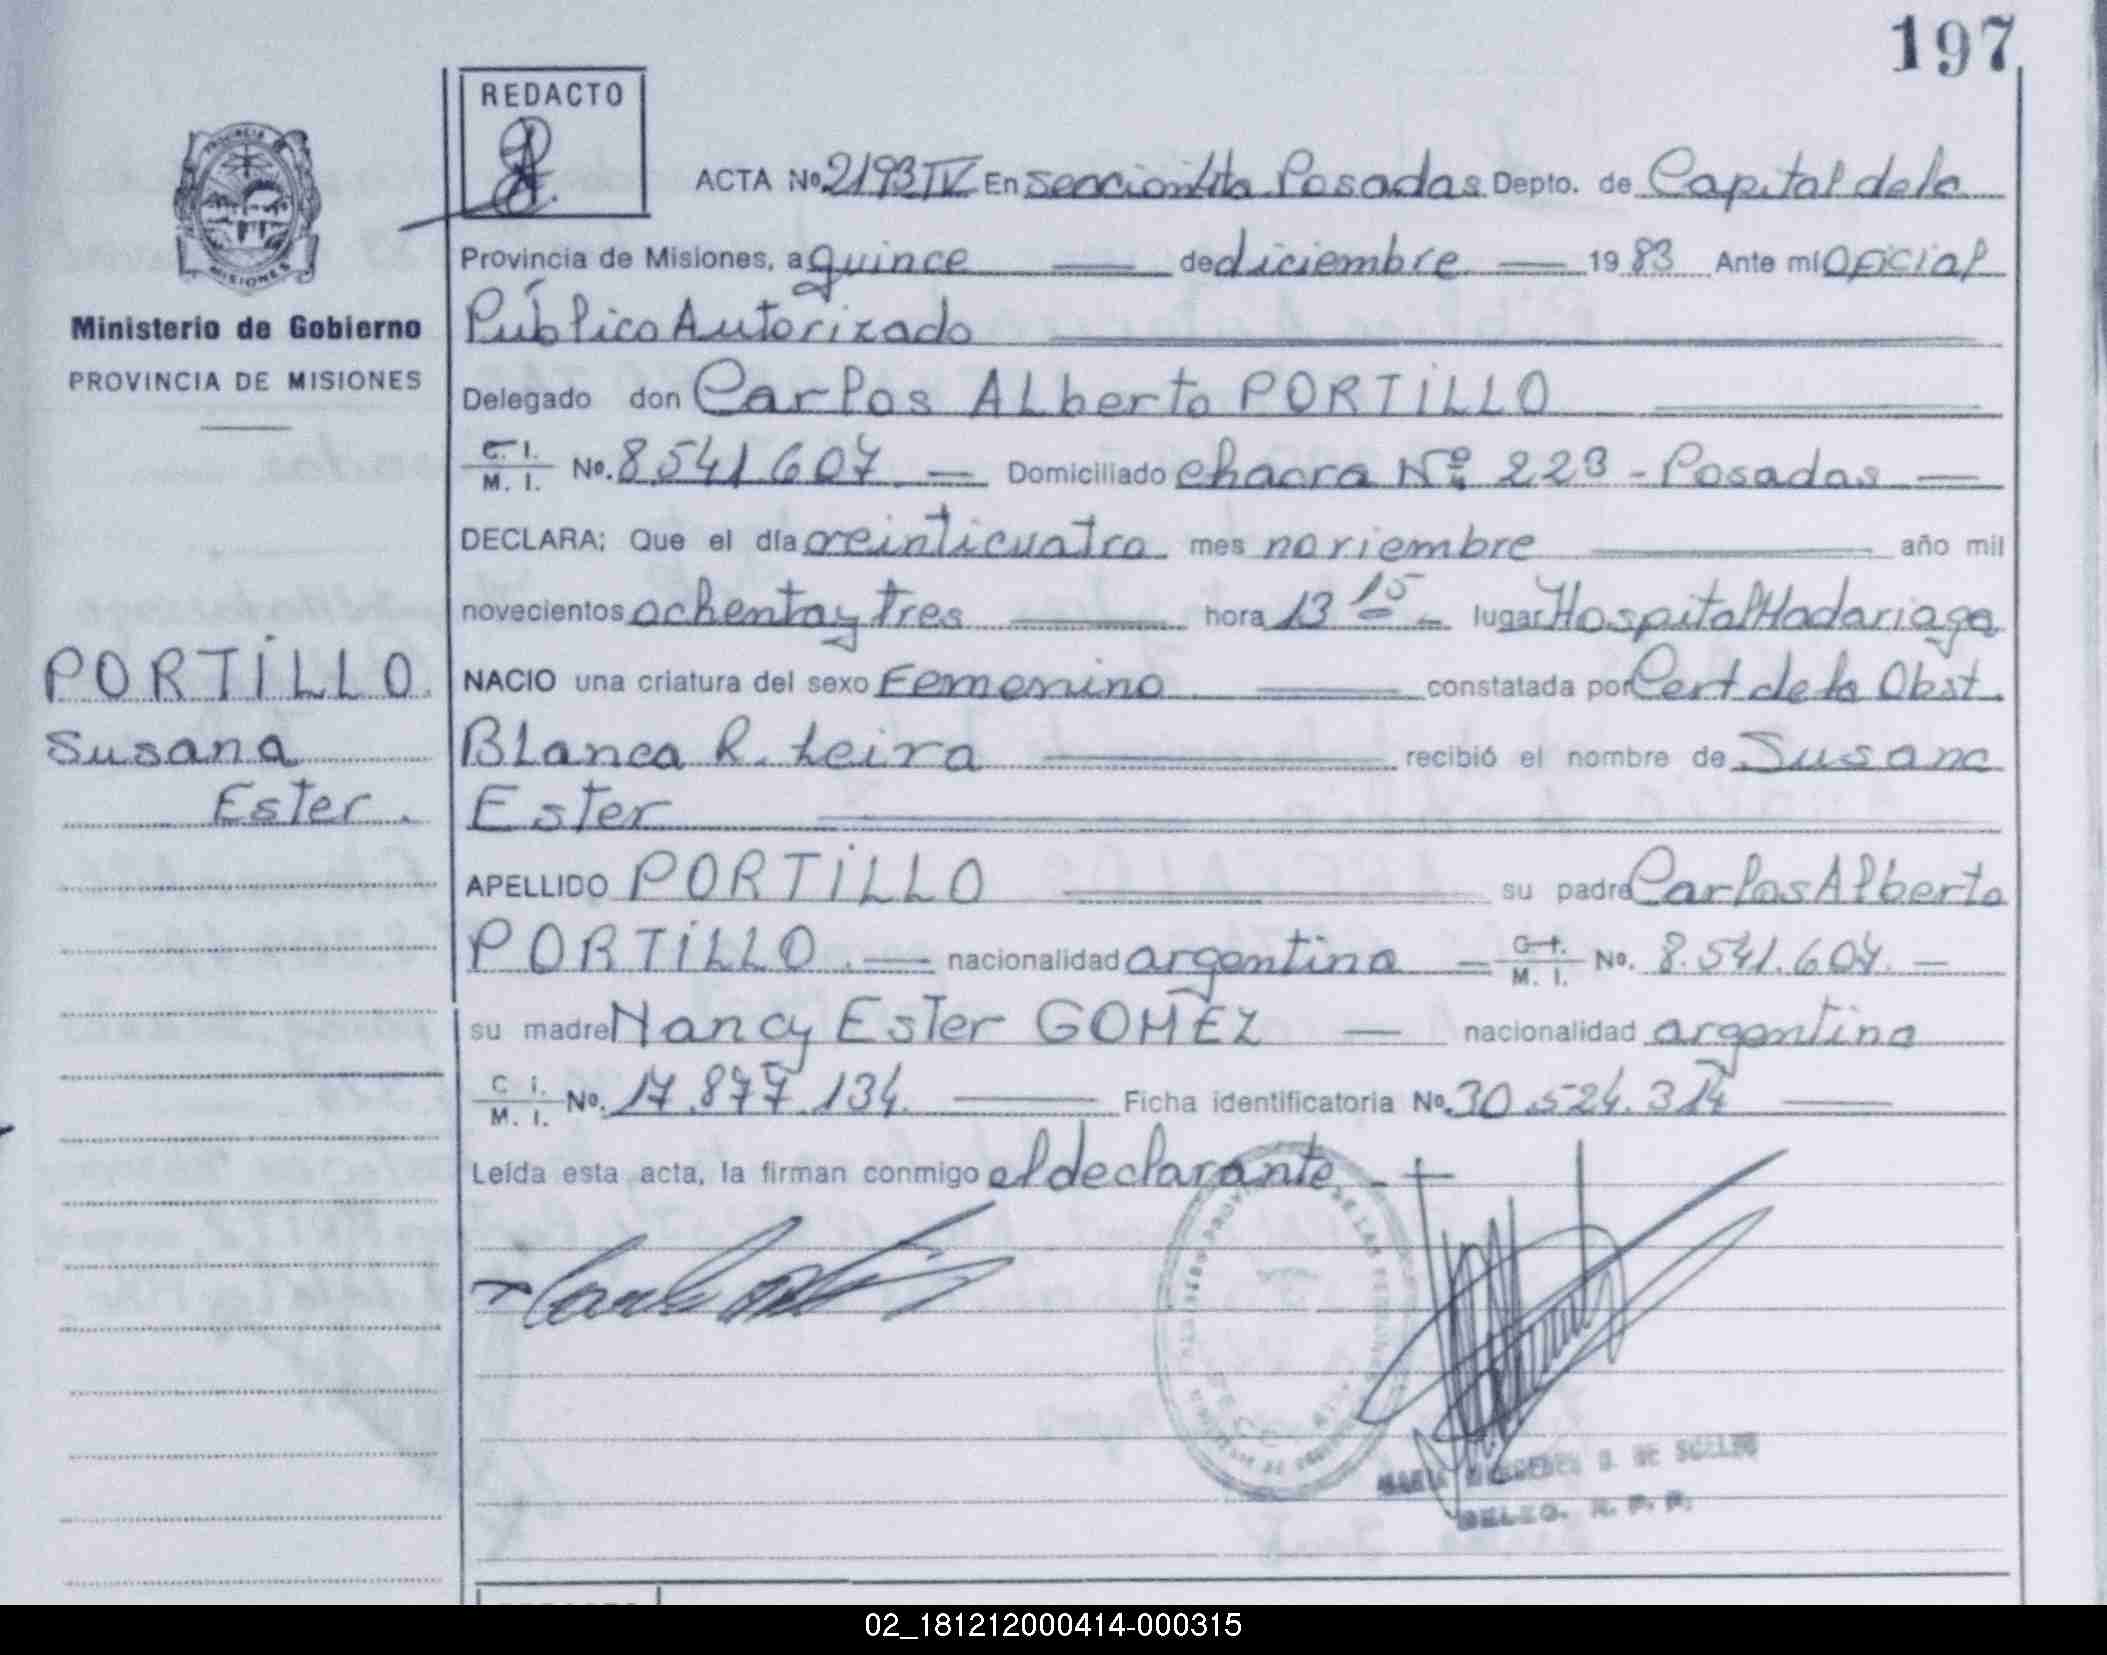 197
REDACTO
PROVINCIA
MISIONES
Ministerio de Gobierno
PROVINCIA DE MISIONES
PORTILLO
Susana
Ester.
ACTA No 2193 IV En sección 4ta Posadas Depto. de Capital de la
Provincia de Misiones, a quince — de diciembre — 1983 Ante mí Oficial
Público Autorizado
Delegado don Carlos Alberto PORTILLO
C. I. / M. I. No. 8.541.607. — Domiciliado chacra Nº 223 - Posadas —
DECLARA: Que el día veinticuatro mes noviembre — año mil
novecientos ochenta y tres — hora 13 15 - lugar Hospital Madariaga
NACIO una criatura del sexo Femenino — constatada por Cert de la Obst.
Blanca R. Leira — recibió el nombre de Susana
Ester
APELLIDO PORTILLO — su padre Carlos Alberto
PORTILLO. — nacionalidad argentina — C. I. / M. I. No. 8.541.607. —
su madre Nancy Ester GOMEZ — nacionalidad argentina
C. I. / M. I. No. 17.877.134. — Ficha identificatoria No. 30.524.314 —
Leída esta acta, la firman conmigo el declarante. -
DE LAS PERSONAS
MARIA MERCEDES
DELEG. R. P. P.
02_181212000414-000315